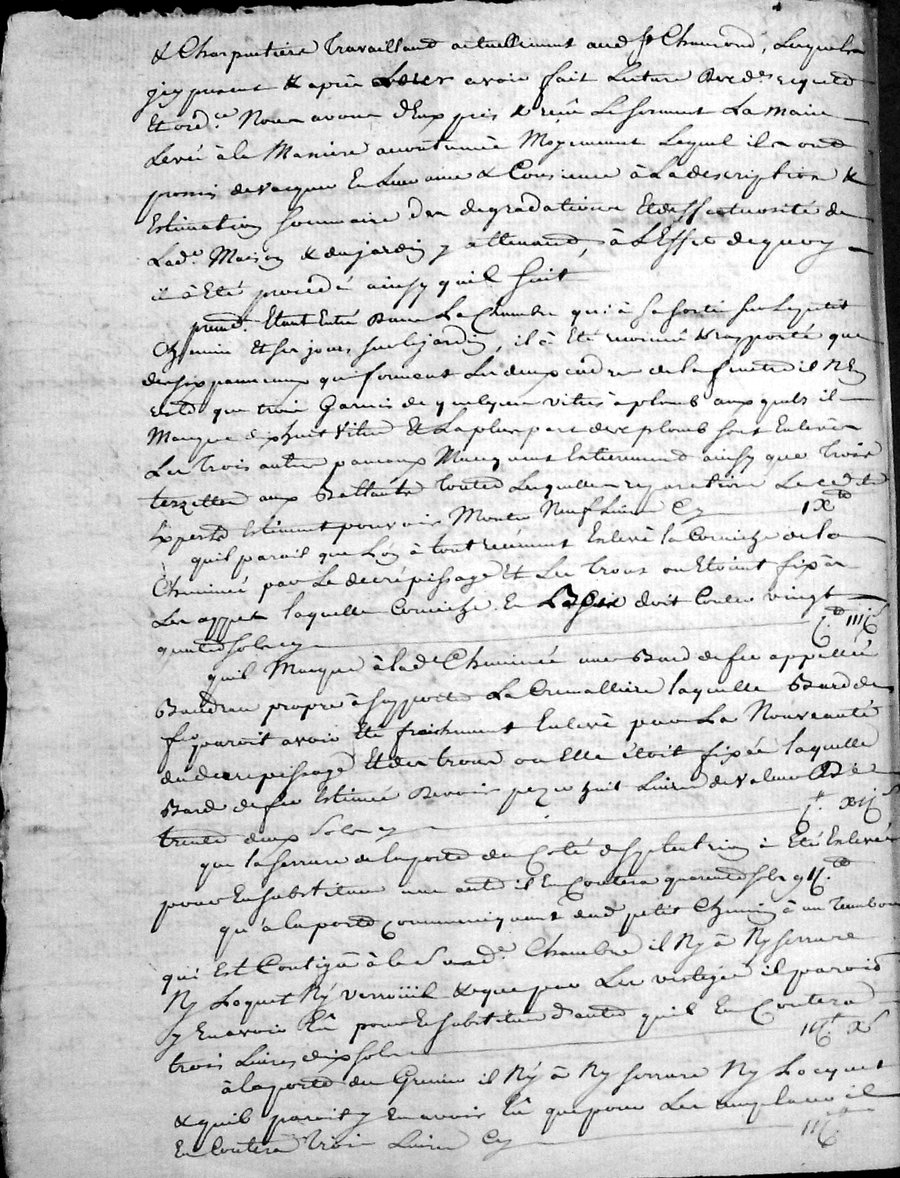 & Charpentiers Travaillant actuellement aud. St Chamond, Lesquels
icy presents & après Leur avoir fait Lecture Desd. requete
Et ord.ce Nous avons d'Eux pris & reçu Le serment La main
Levée à la Maniere accoutumée Moyennant Lequel ils ont
promis de vacquer En Leur ame & Consience à La description &
Estimation sommaire des degradations Et deffectuosité de
Lad.e Maison & du jardin y attenant, à L'Effet de quoy
il à Eté procédé ainsy quil suit
prem.t Etant Entré Dans La Chambre qui à sa sortie sur Le petit
Chemin Et ses jours sur le jardin, il à Eté reconnu & rapporté que
des six panneaux qui forment Les deux cadres de la fenetre il N'En
reste que trois Garnis de quelques vitres à plomb auxquels il
Manque dixhuit vitres Et La plus part des plombs sont Enlevés
Les Trois autres paneaux Manquent Entierement ainsy que Trois
tarzettes aux Battants toutes Lesquelles reparations Lesdits
Experts Estiment pouvoir Monter Neuf Livres Cy IX tt
quil paroit que L'on à tout récément Enlevé la Corniche de la
Cheminée par Le decrépissage Et Les trous ou Etoient fixés
Les appuis laquelle Corniche En doit Couter vingt
quatre sols cy
quil Manque à lad.e Cheminée une Bare de fer appellée
Bandeau propre à supporter La Cremalliere laquelle Bare de
fer paroit avoir Eté fraichement Enlevé par La Nouveauté
du decrepissage Et des trous ou Elle étoit fixée laquelle
Bare de fer Estimée Devoir pezer huit Livres de valeur De
trente deux Sols cy
que la serrure de la porte du Coté à Eté Enlevée
pour En substituer une autre il En Coutera quarente sols cy II tt
qu'à la porte Communiquant dud. petit Chemin à un Tambour
qui Est Contigu à la Susd.e Chambre il Ny à Ny serrure
Ny Loquet Ny verrouil & que par Les vestiges il paroit
y En avoir Eu pour En substituer d'autres quil En Coutera
trois Livres dix sols III tt X s
à la porte du Grenier il Ny à Ny serrure Ny Locquet
& quil paroit y En avoir Eu que pour Les remplacer il
En Coutera Trois Livres Cy III tt